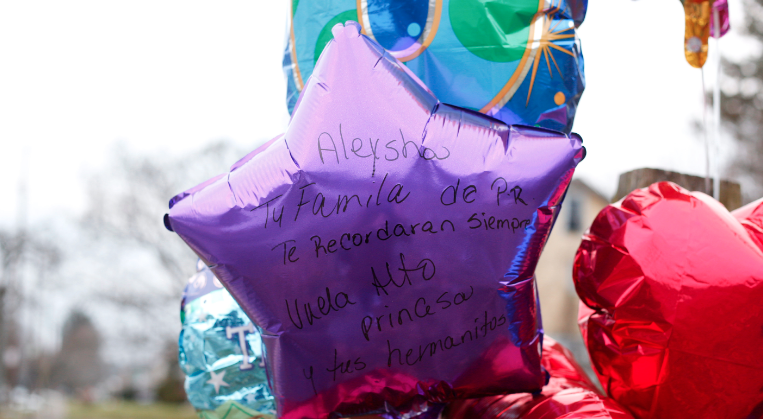 Aleysha
Tu Familia de PR
Te Recordaran Siempre
Vuela Alto
princesa
y tus hermanitos
T